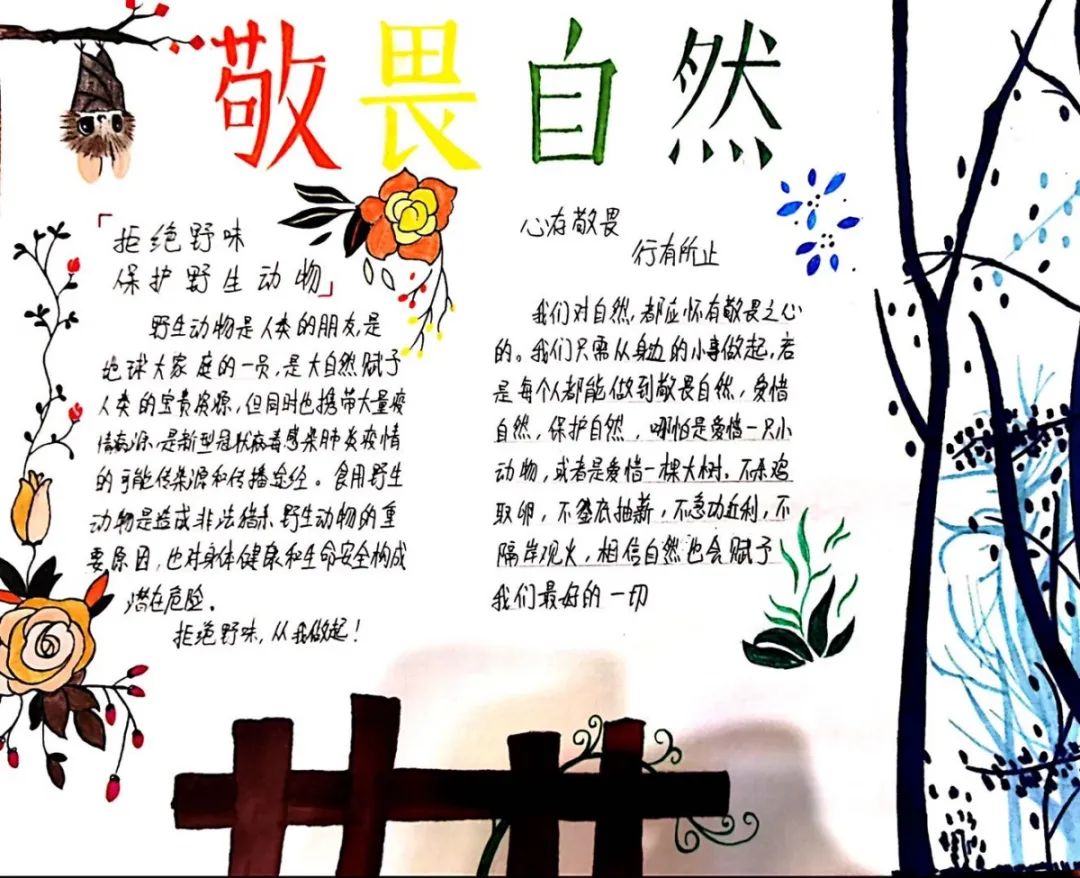 敬畏自然
「拒绝野味
保护野生动物」
野生动物是人类的朋友,是
地球大家庭的一员,是大自然赋予
人类的宝贵资源,但同时也携带大量疫
情病源,是新型冠状病毒感染肺炎疫情
的可能传染源和传播途径。食用野生
动物是造成非法猎杀野生动物的重
要原因,也对身体健康和生命安全构成
潜在危险。
拒绝野味,从我做起!
心存敬畏
行有所止
我们对自然,都应怀有敬畏之心
的。我们只需从身边的小事做起,若
是每个人都能做到敬畏自然,爱惜
自然,保护自然,哪怕是爱惜一只小
动物,或者是爱惜一棵大树。不杀鸡
取卵,不釜底抽薪,不急功近利,不
隔岸观火,相信自然也会赋予
我们最好的一切